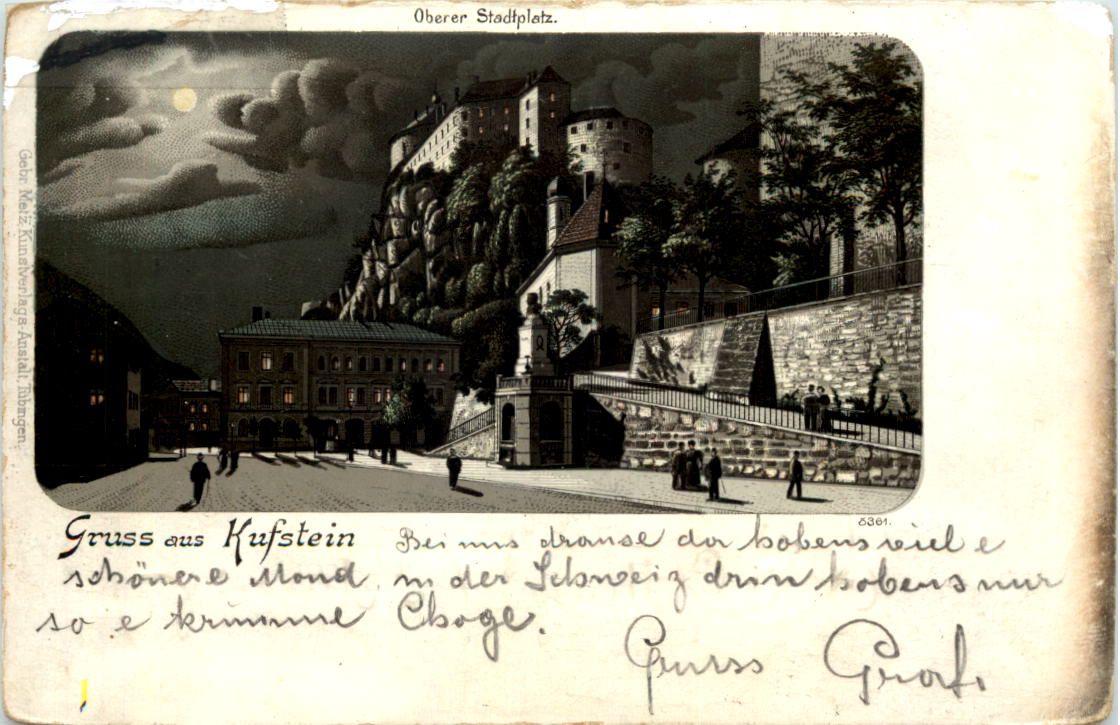 Oberer Stadtplatz.
Gebr. Metz, Kunstverlags-Anstalt, Tübingen.
5361.
Gruss aus Kufstein
Bei uns drause da hobens viel e
schönere Mond, in der Schweiz drin hobens nur
so e krumme Choge.
Gruss Graf.